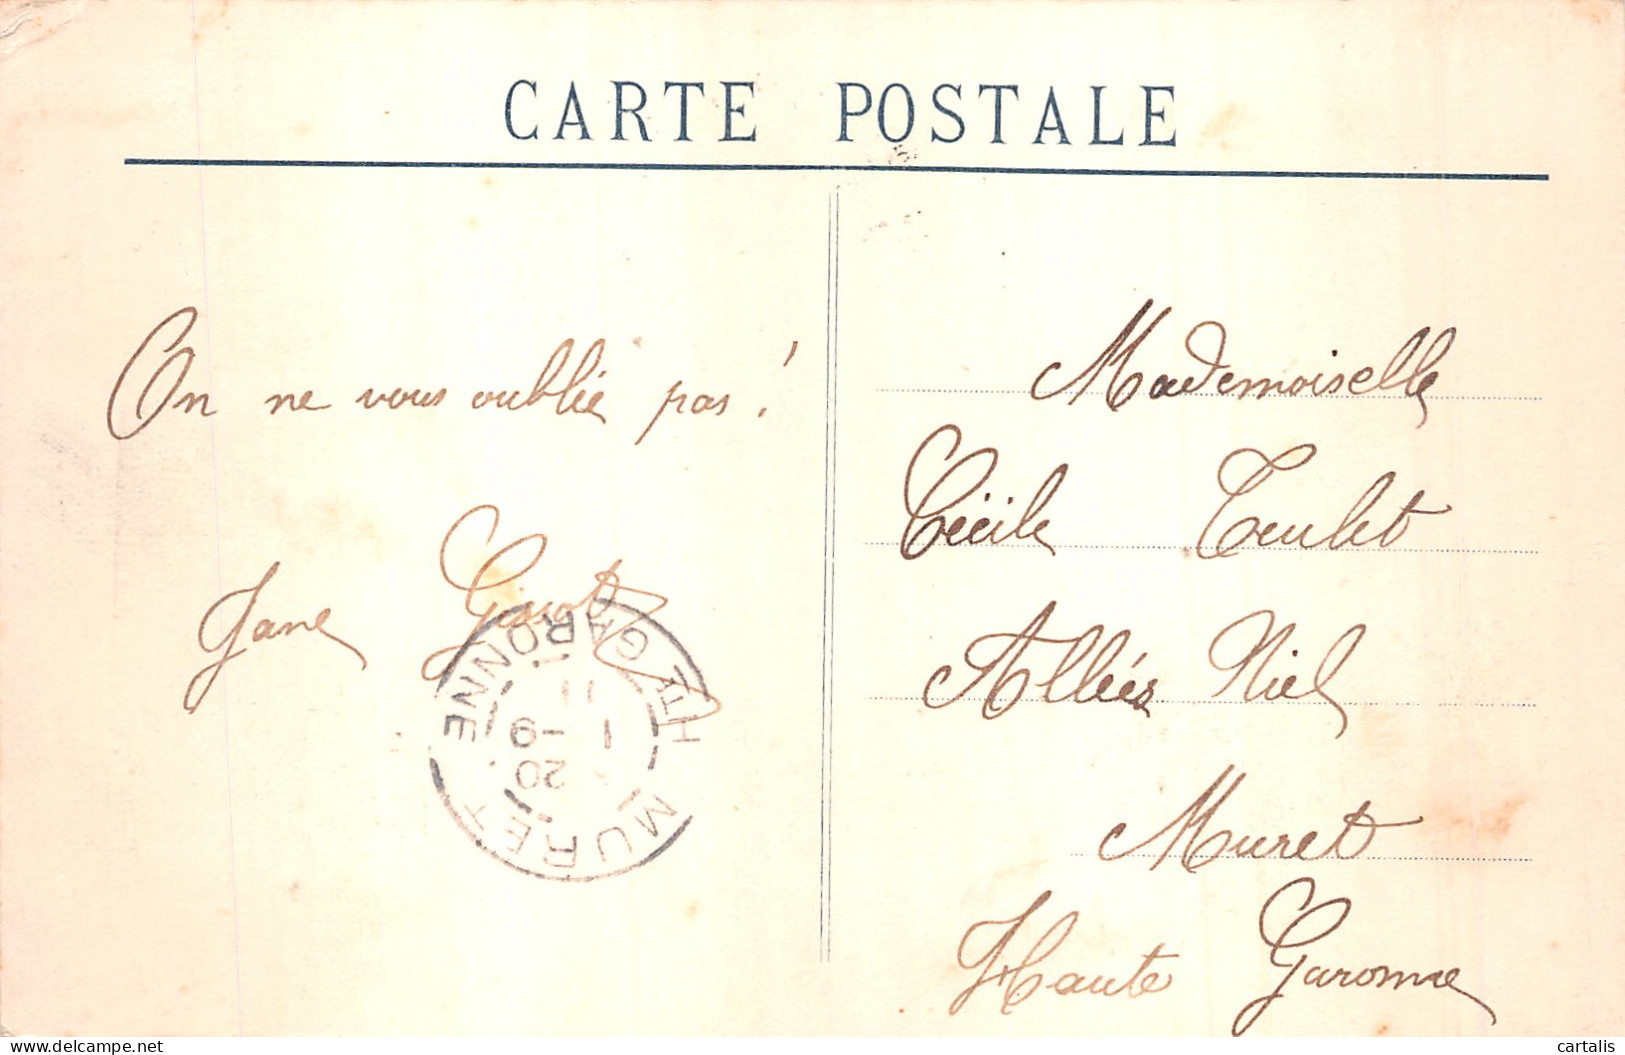 CARTE POSTALE
On ne vous oublie pas !
Jane
Mademoiselle
Cécile Teulet
Allées Niel
Muret
Haute Garonne
MURET
HTE GARONNE
20
1 -9
11
cartalis
www.delcampe.net